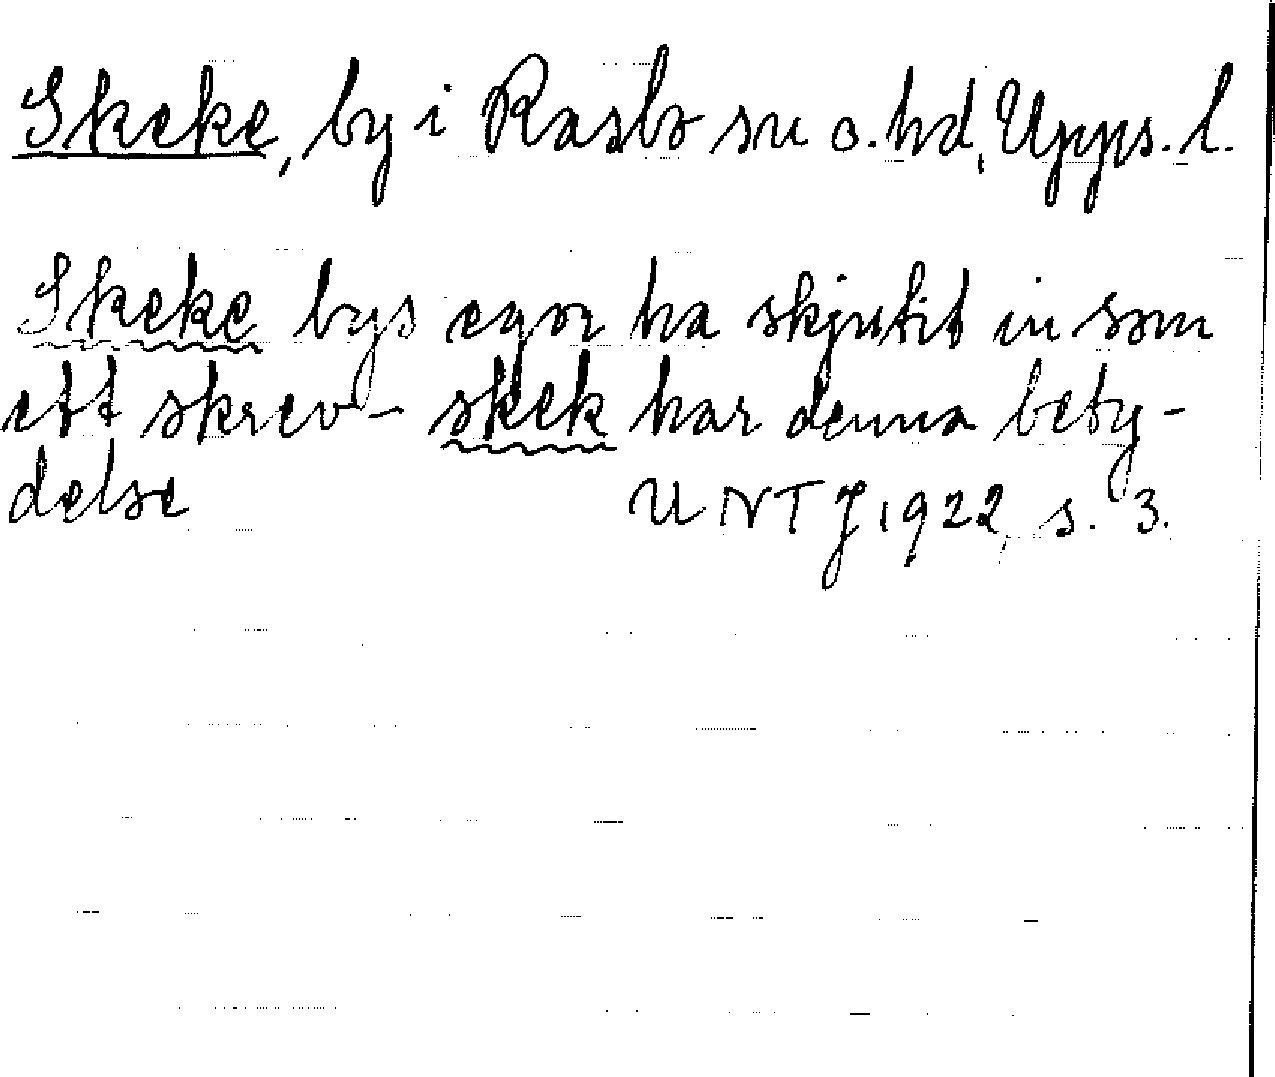 Skeke, by i Rasbo sn o. hd, Upps. l.
Skeke bys egor ha skjutit in som
ett skrev - skek har denna bety-
delse UNTJ 1922, s. 3.